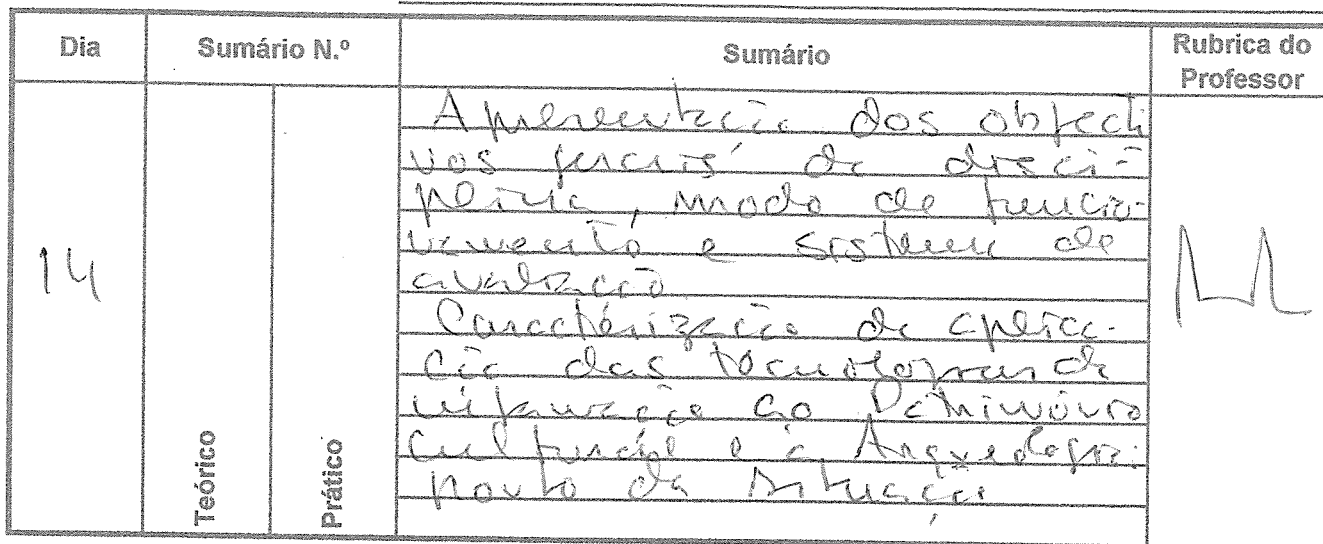 Dia
Sumário N.º
Sumário
Rubrica do
Professor
14
Teórico
Prático
Apresentação dos objecti
vos gerais da disci-
plina, modo de funcio-
namento e sistema de
avaliação
Caracterização da aplica-
ção das tecnologias da
informação ao Património
Cultural e à Arqueologia:
ponto da situação